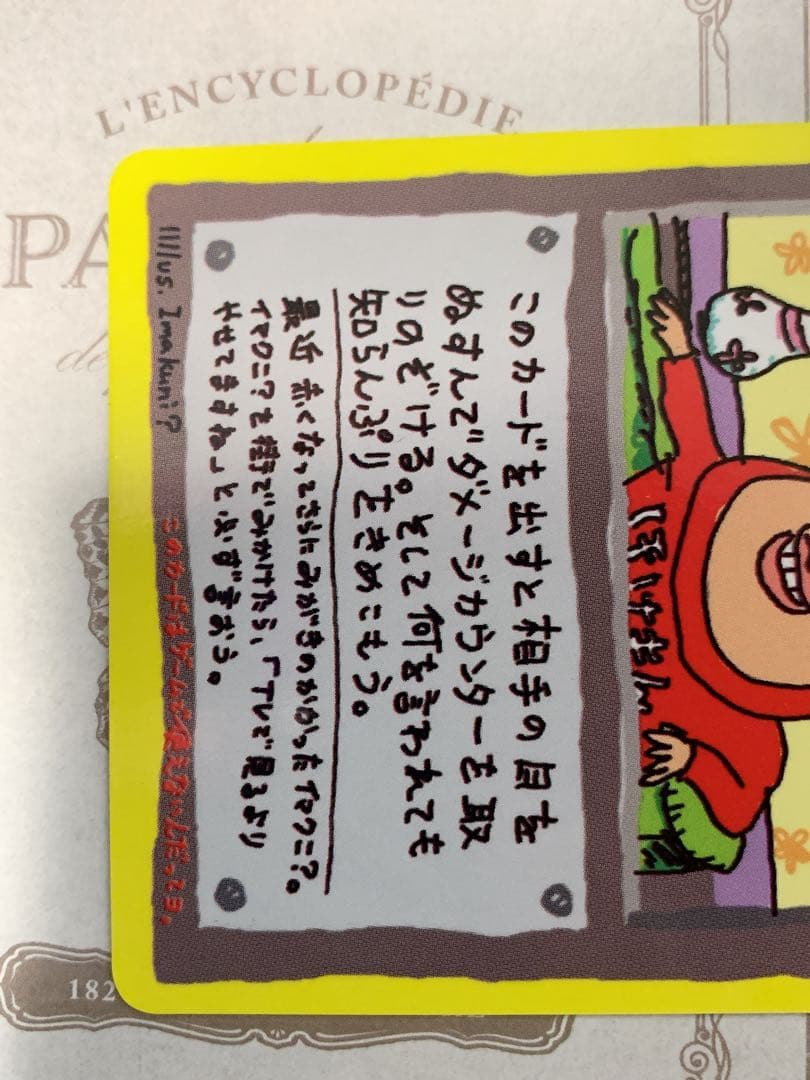 L'ENCYCLOPÉDIE
PA
de
このカードを出すと相手の目を
ぬすんでダメージカウンターを取
りのぞける。そして何を言われても
知らんぷりをきめこもう。
最近 赤くなってさらにみがきのかかったイマクニ?。
イマクニ?を街でみかけたら、「TVで見るより
やせてますねー」と必ず言おう。
Illus. Imakuni?
このカードはゲームで使えないんだってヨ。
182